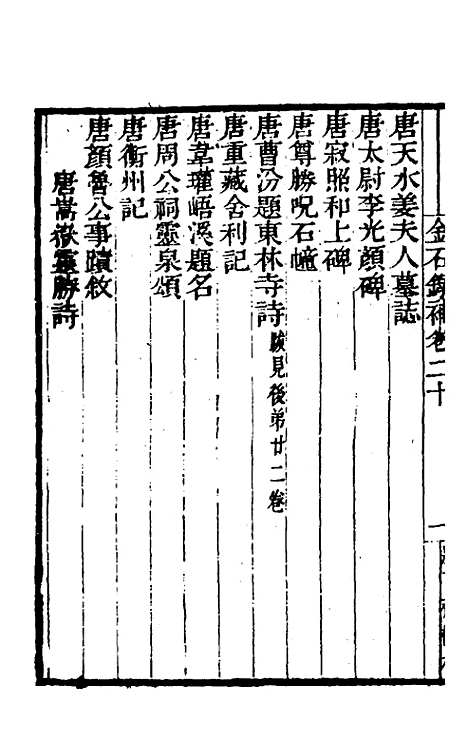 金石錄補卷二十
一
唐天水姜夫人墓誌
唐太尉李光顏碑
唐寂照和上碑
唐尊勝呪石幢
唐曹汾題東林寺詩 跋見後弟廿二卷
唐重藏舍利記
唐韋瓘峿溪題名
唐周公祠靈泉頌
唐衡州記
唐顏魯公事蹟敘
唐嵩嶽靈勝詩